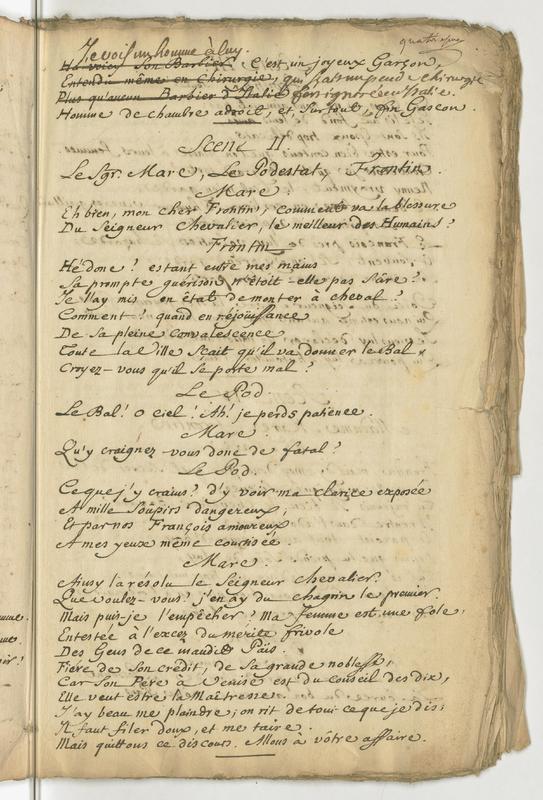 Je vois un homme à luy.
Ha voicy Son Barbier. C'est un joyeux Garçon,
Entendu même en Chirurgie, qui
Plus qu'aucun Barbier d'Italie
Homme de chambre adroit, et, surtout, fin Gascon.
Scene II.
Le Sgr. Mare, Le Podestat, Frontin.
Mare.
Eh bien, mon cher Frontin, comment va la blessure
Du Seigneur Chevalier, le meilleur des Humains?
Frontin
Hé donc? estant entre mes mains
Sa prompte guérison n'étoit-elle pas sûre?
Je l'ay mis en état de monter à cheval.
Comment? quand en réjouissance
De sa pleine convalescence
Toute la Ville sçait qu'il va donner le Bal,
Croyez-vous qu'il se porte mal?
Le Pod.
Le Bal! o ciel! Ah! je perds patience.
Mare.
Qu'y craignez-vous donc de fatal?
Le Pod.
Ce que j'y crains? d'y voir ma clarice exposée
A mille Soupirs dangereux,
Et par nos François amoureux
A mes yeux même courtisée.
Mare.
Ainsy la résolu le Seigneur Chevalier.
Que voulez-vous? j'en ay du chagrin le premier.
Mais puis-je l'empêcher? Ma femme est une fole,
Entestée à l'excez du mérite frivole
Des Gens de ce maudit Païs.
Fiere de Son crédit, de sa grande noblesse,
Car Son Pere à Venise est du Conseil des dix,
Elle veut estre la Maîtresse.
J'ay beau me plaindre; on rit de tout ce que je dis;
Il faut filer doux, et me taire.
Mais quittons ce discours. Allons à vôtre affaire.